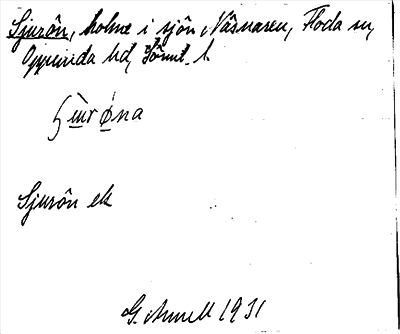 Sjurön, holme i sjön Näsnaren, Floda sn,
Oppunda hd, Sörml. l.
ʃùrǿna
Sjurön ek
G. Annell 1931